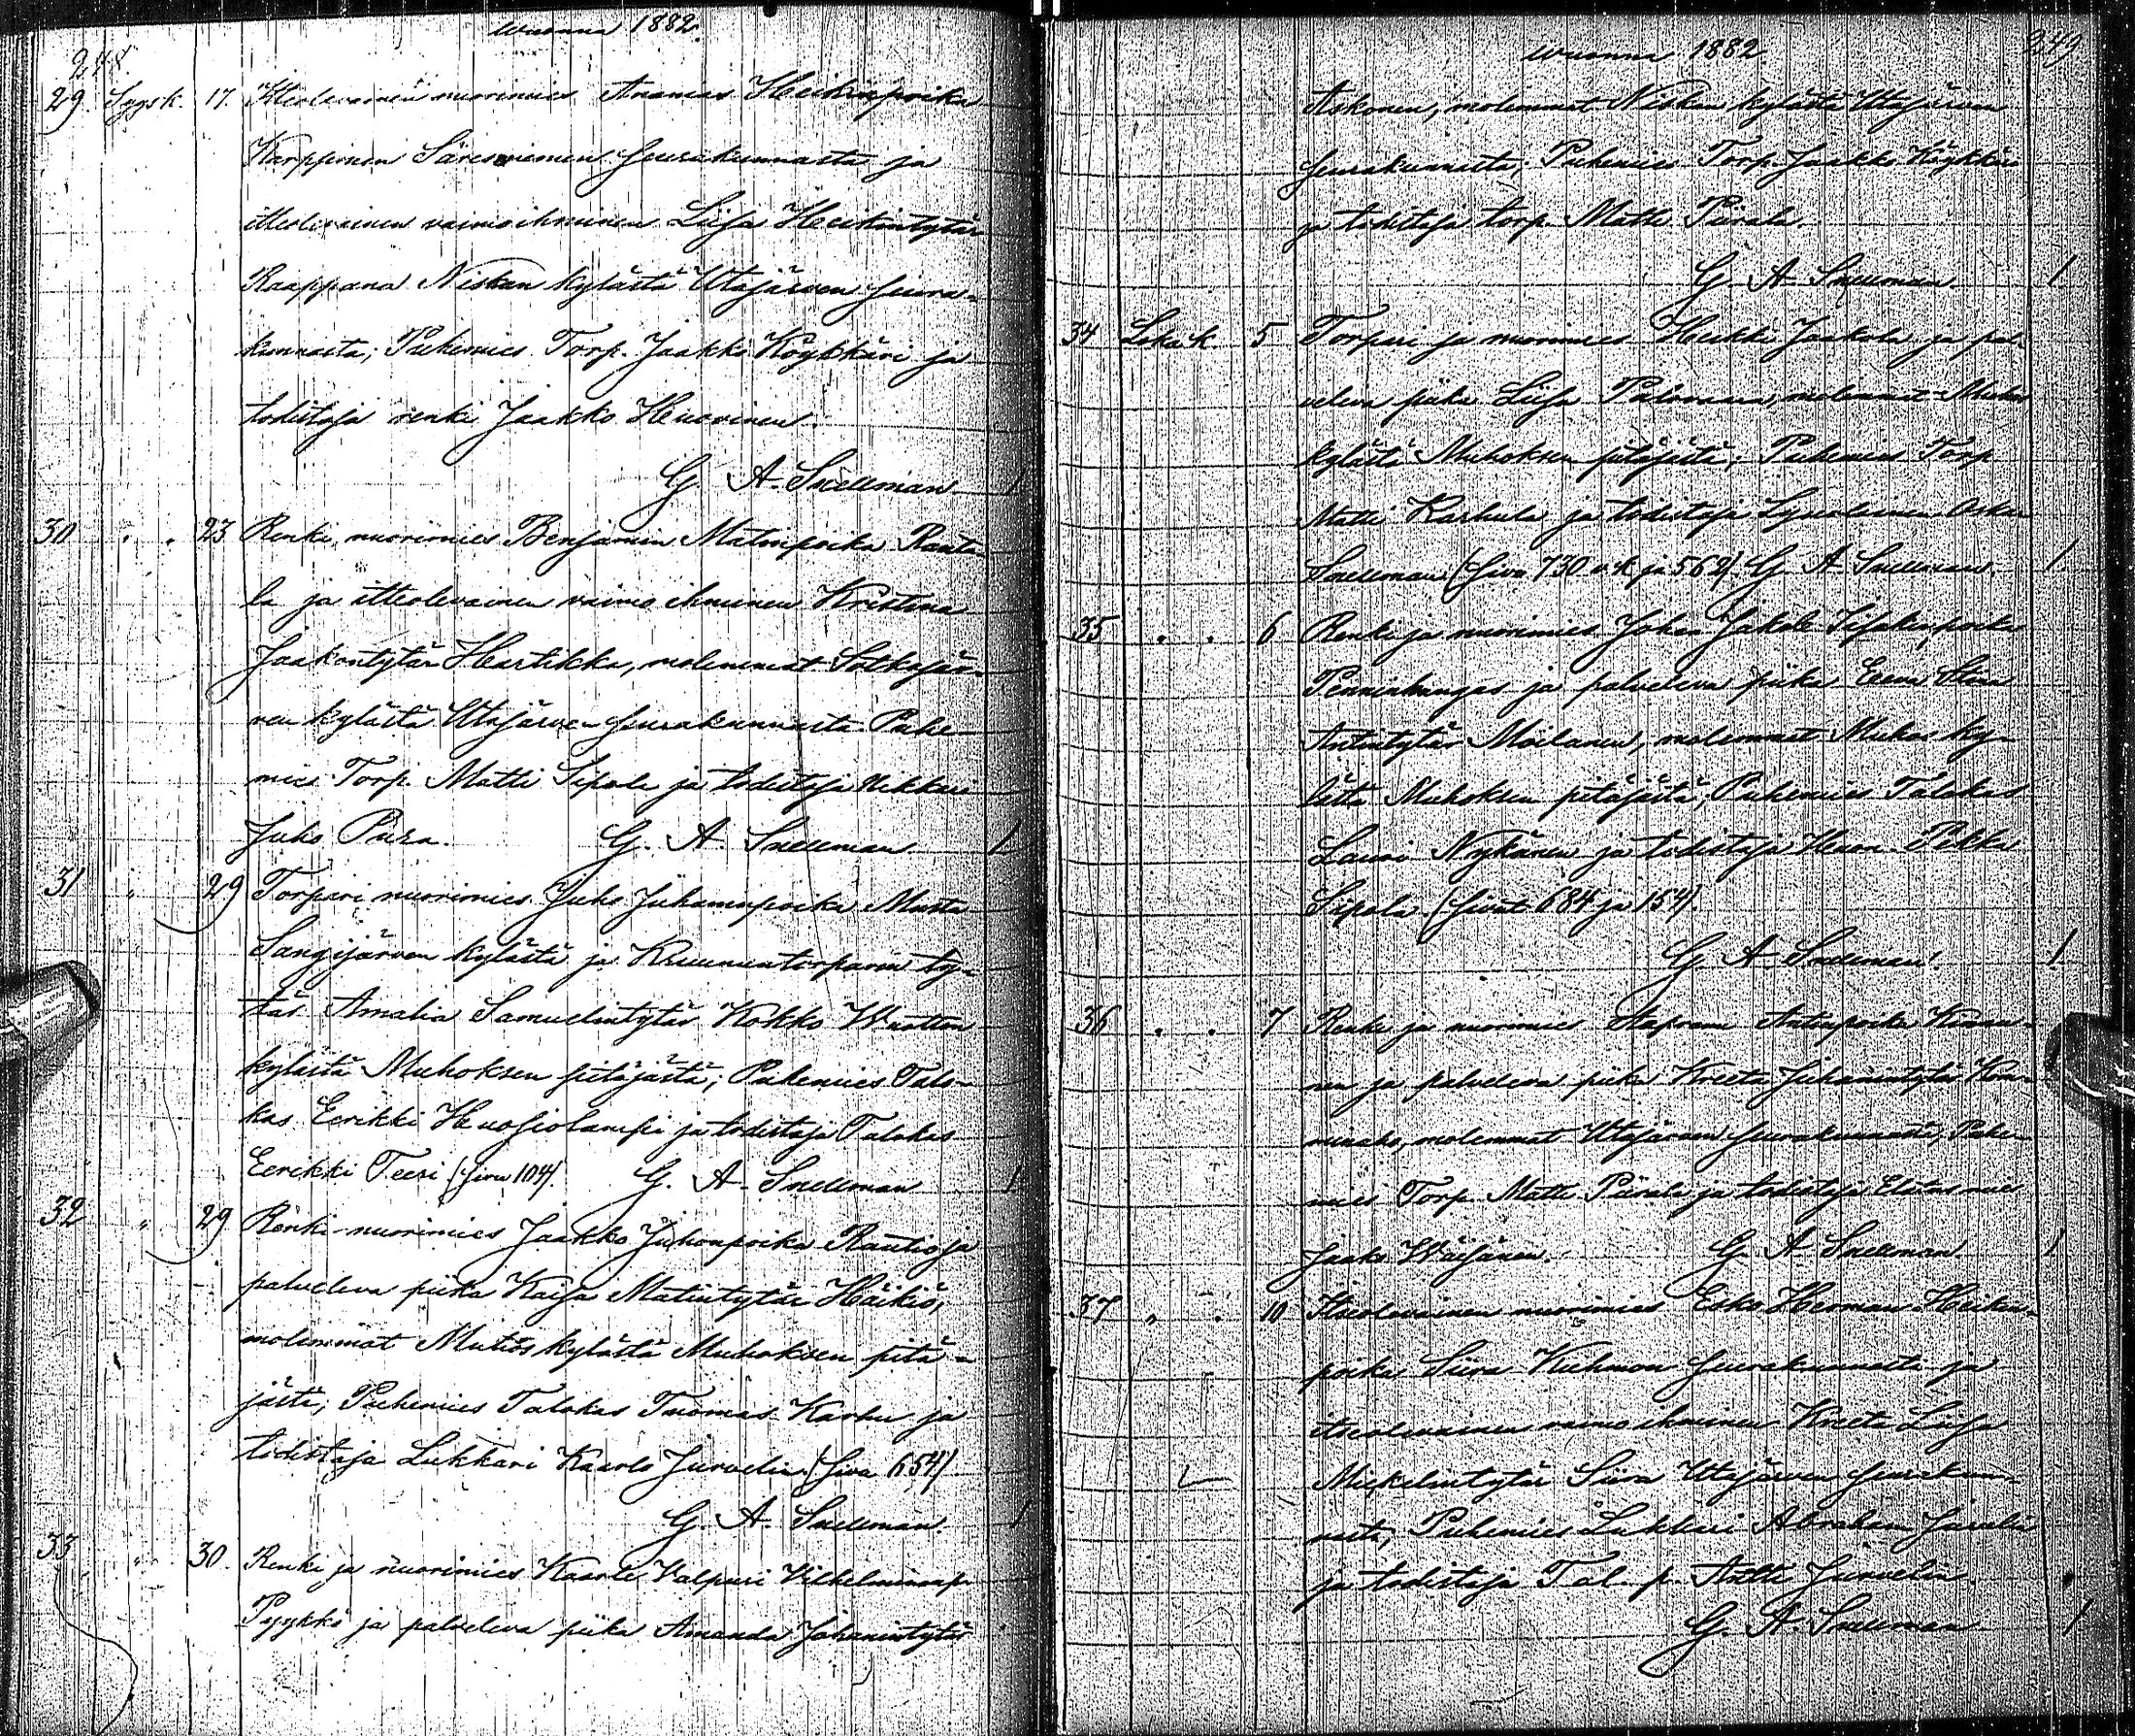 wuonna 1882.
248.
29. Syysk. 17. Itteolevainen nuorimies Ananias Heikinpoika
Karppinen Säresniemen seurakunnasta ja
itteolevainen vaimoihminen Liisa Heikintytär
Raappana Niskan kylästä Utajärven seura-
kunnasta; Puhemies Torp. Jaakko Köykkäri ja
todistaja renki Jaakko Huovinen.
G. A. Snellman 1
30 " " 23 Renki, nuorimies Benjamin Matinpoika Ranta-
la ja itteolevainen vaimo ihminen Kristina
Jaakontytär Hartikka, molemmat Sotkajär-
ven kylästä Utajärven seurakunnasta. Puhe-
mies Torp. Matti Sipola ja todistaja Nikkari
Juho Pura. G. A. Snellman. 1
31 " 29 Torpari nuorimies Juho Juhaninpoika Musta
Sangijärven kylästä ja Kruununtorparin ty-
tär Amalia Samuelintytär Kokko Wuotton
kylästä Muhoksen pitäjästä; Puhemies Talo-
kas Eerikki Huosiolampi ja todistaja Talokas
Eerikki Teeri (sivu 104). G. A. Snellman 1
32 " 29 Renki-nuorimies Jaakko Juhonpoika Rautio ja
palveleva piika Kaisa Matintytär Häikiö,
molemmat Muhos kylästä Muhoksen pitä-
jästä; Puhemies Talokas Tuomas Karhu ja
todistaja Lukkari Kaarlo Jurvelin (sivu 654)
G. A. Snellman. 1
33 " 30. Renki ja nuorimies Kaarle Valpuri Vilhelminp.
Pyykkö ja palveleva piika Amanda Johanintytär
wuonna 1882. 249
Askonen, molemmat Niskan kylästä Utajärven
seurakunnasta; Puhemies Torp. Jaakko Köykkäri
ja todistaja torp. Matti Piirala.
G. A. Snellman. 1
34 Lokak. 5 Torpari ja nuorimies Heikki Jaakola ja pal-
veleva piika Liisa Palovaara, molemmat Muhos
kylästä Muhoksen pitäjästä; Puhemies Torp.
Matti Karhula ja todistaja Lyseolainen Oskar
Snellman (sivu 730 v.k. ja 562) G. A. Snellman. 1
35 " " 6 Renki ja nuorimies Johan Jakob Iisakinpoika
Penninkangas ja palveleva piika Eeva Stina
Antintytär Moilanen, molemmat Muhos ky-
lästä Muhoksen pitäjästä; Puhemies Talokas
Lauri Nykänen ja todistaja Pekka
Sipola (sivut 684 ja 154).
G. A. Snellman. 1
36 " " 7 Renki ja nuorimies Antinpoika
nen ja palveleva piika Kreeta Juhanintytär
molemmat Utajärven seurakunnasta; Puhe-
mies Torp. Matti Piirala ja todistaja
Jaako Wäisänen. G. A. Snellman. 1
37 " " 10 Itseolevainen nuorimies Esko Herman Heikin-
poika Siira Kuhmon seurakunnasta ja
itseolevainen vaimo ihminen Kreeta Liisa
Mickelintytär Siira Utajärven seurakun-
nasta; Puhemies Lukkari Abraham Jurvelin
ja todistaja Tal. p. Antti Jurvelin.
G. A. Snellman 1